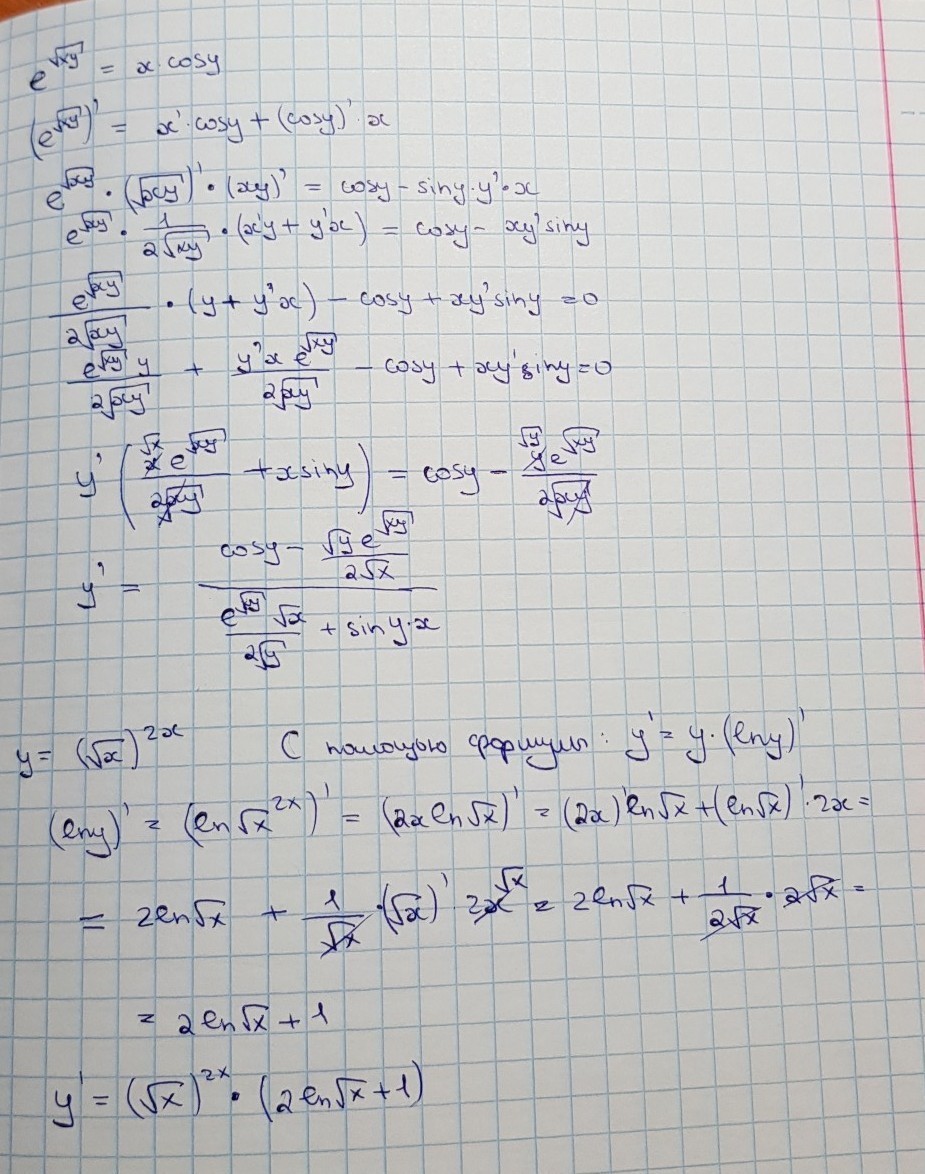 e^√(xy) = x·cosy
(e^√(xy))' = x'·cosy + (cosy)'·x
e^√(xy) · (√(xy))' · (xy)' = cosy - siny·y'·x
e^√(xy) · 1/(2√(xy)) · (x'y + y'x) = cosy - xy'siny
e^√(xy)/(2√(xy)) · (y + y'x) - cosy + xy'siny = 0
e^√(xy) y/(2√(xy)) + y'x e^√(xy)/(2√(xy)) - cosy + xy'siny = 0
y' (√x x e^√(xy)/(2√(xy)) + x siny) = cosy - √y y e^√(xy)/(2√(xy))
y' = (cosy - √y e^√(xy)/(2√x)) / (e^√(xy) √x/(2√y) + siny·x)
y = (√x)^2x С помощью формулы: y' = y·(lny)'
(lny)' = (ln√x^2x)' = (2x ln√x)' = (2x)'ln√x + (ln√x)'·2x =
= 2ln√x + 1/√x · (√x)' 2x √x = 2ln√x + 1/(2√x) · 2√x =
= 2ln√x + 1
y' = (√x)^2x · (2ln√x + 1)